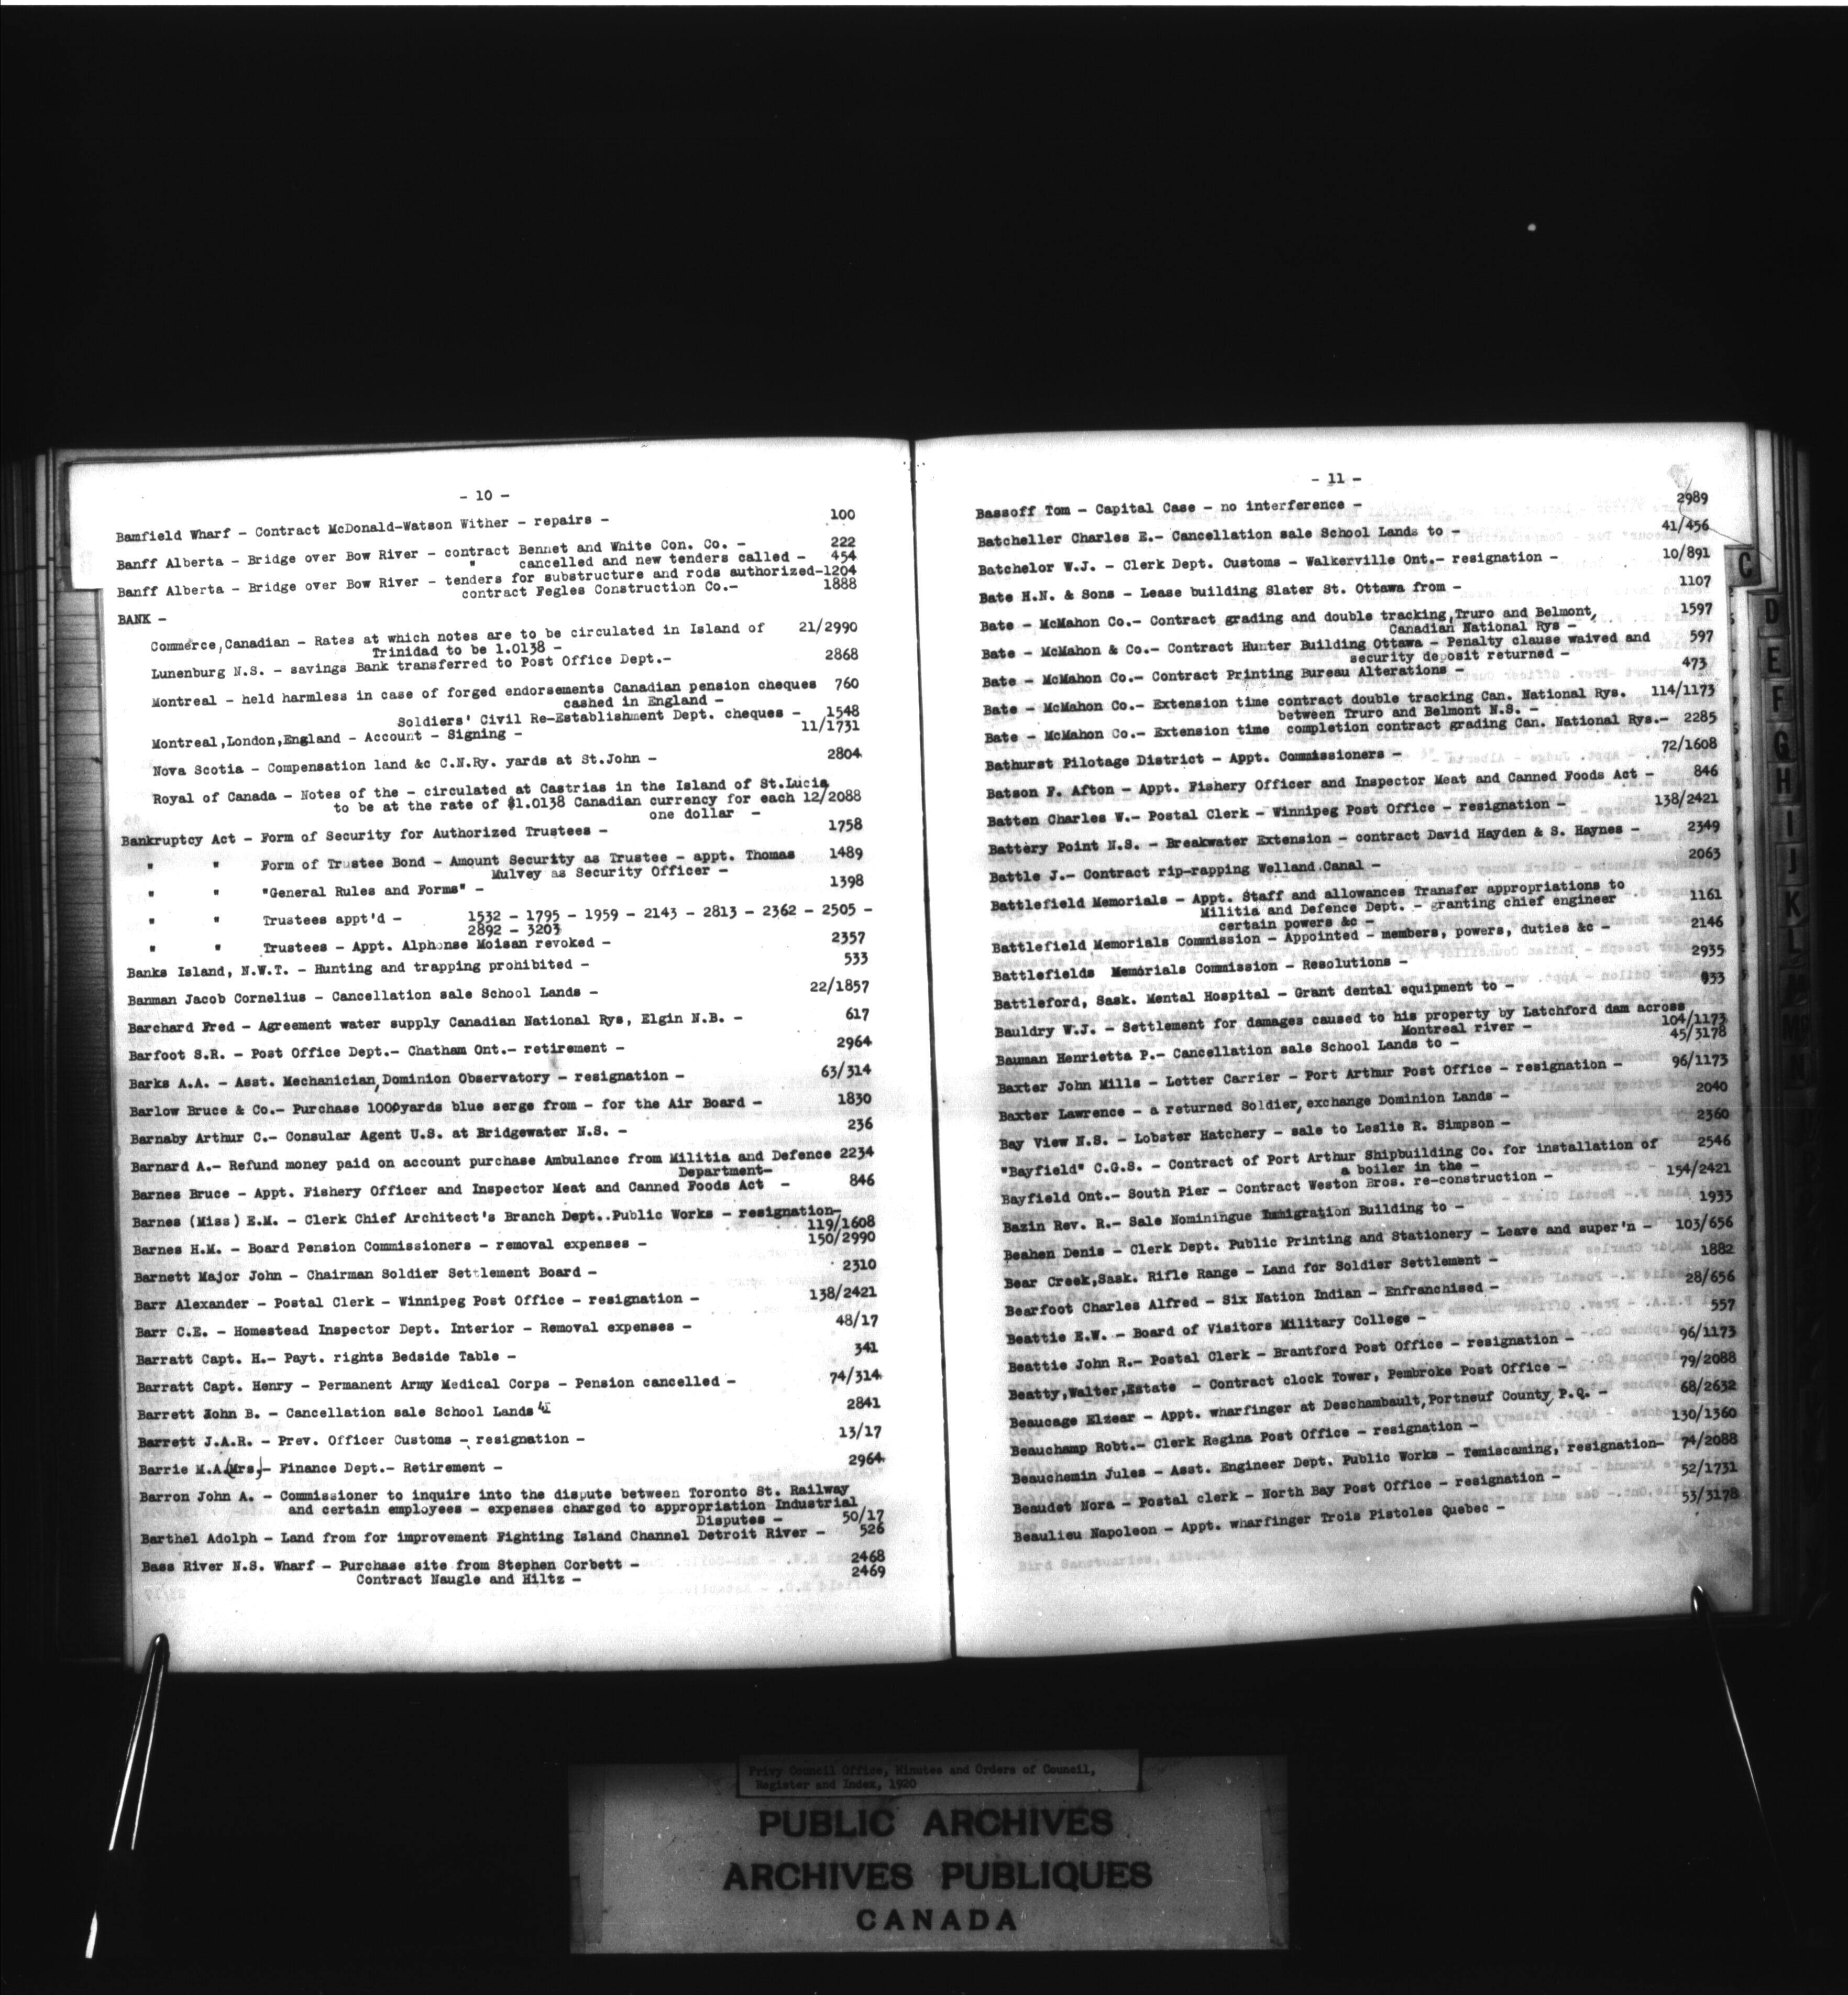 - 10 -
Bamfield Wharf - Contract McDonald-Watson Wither - repairs - 100
Banff Alberta - Bridge over Bow River - contract Bennet and White Con. Co. - 222
" cancelled and new tenders called - 454
Banff Alberta - Bridge over Bow River - tenders for substructure and rods authorized-1204
contract Fegles Construction Co.- 1888
BANK -
Commerce,Canadian - Rates at which notes are to be circulated in Island of 21/2990
Trinidad to be 1.0138 -
Lunenburg N.S. - savings Bank transferred to Post Office Dept.- 2868
Montreal - held harmless in case of forged endorsements Canadian pension cheques 760
cashed in England -
Soldiers' Civil Re-Establishment Dept. cheques - 1548
Montreal,London,England - Account - Signing - 11/1731
Nova Scotia - Compensation land &c C.N.Ry. yards at St.John - 2804
Royal of Canada - Notes of the - circulated at Castrias in the Island of St.Lucia
to be at the rate of $1.0138 Canadian currency for each 12/2088
one dollar -
Bankruptcy Act - Form of Security for Authorized Trustees - 1758
" " Form of Trustee Bond - Amount Security as Trustee - appt. Thomas 1489
Mulvey as Security Officer -
" " "General Rules and Forms" - 1398
" " Trustees appt'd - 1532 - 1795 - 1959 - 2143 - 2813 - 2362 - 2505 -
2892 - 3203
" " Trustees - Appt. Alphonse Moisan revoked - 2357
Banks Island, N.W.T. - Hunting and trapping prohibited - 533
Banman Jacob Cornelius - Cancellation sale School Lands - 22/1857
Barchard Fred - Agreement water supply Canadian National Rys, Elgin N.B. - 617
Barfoot S.R. - Post Office Dept.- Chatham Ont.- retirement - 2964
Barks A.A. - Asst. Mechanician,Dominion Observatory - resignation - 63/314
Barlow Bruce & Co.- Purchase 1000yards blue serge from - for the Air Board - 1830
Barnaby Arthur C.- Consular Agent U.S. at Bridgewater N.S. - 236
Barnard A.- Refund money paid on account purchase Ambulance from Militia and Defence 2234
Department-
Barnes Bruce - Appt. Fishery Officer and Inspector Meat and Canned Foods Act - 846
Barnes (Miss) E.M. - Clerk Chief Architect's Branch Dept..Public Works - resignation-
119/1608
Barnes H.M. - Board Pension Commissioners - removal expenses - 150/2990
Barnett Major John - Chairman Soldier Settlement Board - 2310
Barr Alexander - Postal Clerk - Winnipeg Post Office - resignation - 138/2421
Barr C.E. - Homestead Inspector Dept. Interior - Removal expenses - 48/17
Barratt Capt. H.- Payt. rights Bedside Table - 341
Barratt Capt. Henry - Permanent Army Medical Corps - Pension cancelled - 74/314
Barrett John B. - Cancellation sale School Lands 2841
Barrett J.A.R. - Prev. Officer Customs - resignation - 13/17
Barrie M.A(Mrs)- Finance Dept.- Retirement - 2964
Barron John A. - Commissioner to inquire into the dispute between Toronto St. Railway
and certain employees - expenses charged to appropriation Industrial
Disputes - 50/17
Barthel Adolph - Land from for improvement Fighting Island Channel Detroit River - 526
Bass River N.S. Wharf - Purchase site from Stephen Corbett - 2468
Contract Naugle and Hiltz - 2469
- 11 -
Bassoff Tom - Capital Case - no interference - 2989
Batcheller Charles E.- Cancellation sale School Lands to - 41/456
Batchelor W.J. - Clerk Dept. Customs - Walkerville Ont.- resignation - 10/891
Bate H.N. & Sons - Lease building Slater St. Ottawa from - 1107
Bate - McMahon Co.- Contract grading and double tracking,Truro and Belmont, 1597
Canadian National Rys -
Bate - McMahon & Co.- Contract Hunter Building Ottawa - Penalty clause waived and 597
security deposit returned -
Bate - McMahon Co.- Contract Printing Bureau Alterations - 473
Bate - McMahon Co.- Extension time contract double tracking Can. National Rys. 114/1173
between Truro and Belmont N.S. -
Bate - McMahon Co.- Extension time completion contract grading Can. National Rys.- 2285
Bathurst Pilotage District - Appt. Commissioners - 72/1608
Batson F. Afton - Appt. Fishery Officer and Inspector Meat and Canned Foods Act - 846
Batten Charles W.- Postal Clerk - Winnipeg Post Office - resignation - 138/2421
Battery Point N.S. - Breakwater Extension - contract David Hayden & S. Haynes - 2349
Battle J.- Contract rip-rapping Welland Canal - 2063
Battlefield Memorials - Appt. Staff and allowances Transfer appropriations to
Militia and Defence Dept. - granting chief engineer 1161
certain powers &c -
Battlefield Memorials Commission - Appointed - members, powers, duties &c - 2146
Battlefields Memorials Commission - Resolutions - 2935
Battleford, Sask. Mental Hospital - Grant dental equipment to - 933
Bauldry W.J. - Settlement for damages caused to his property by Latchford dam across
Montreal river - 104/1173
Bauman Henrietta P.- Cancellation sale School Lands to - 45/3178
Baxter John Mills - Letter Carrier - Port Arthur Post Office - resignation - 96/1173
Baxter Lawrence - a returned Soldier,exchange Dominion Lands - 2040
Bay View N.S. - Lobster Hatchery - sale to Leslie R. Simpson - 2360
"Bayfield" C.G.S. - Contract of Port Arthur Shipbuilding Co. for installation of 2546
a boiler in the -
Bayfield Ont.- South Pier - Contract Weston Bros. re-construction - 154/2421
Bazin Rev. R.- Sale Nominingue Immigration Building to - 1933
Beahen Denis - Clerk Dept. Public Printing and Stationery - Leave and super'n - 103/656
Bear Creek,Sask. Rifle Range - Land for Soldier Settlement - 1882
Bearfoot Charles Alfred - Six Nation Indian - Enfranchised - 28/656
Beattie E.W. - Board of Visitors Military College - 557
Beattie John R.- Postal Clerk - Brantford Post Office - resignation - 96/1173
Beatty,Walter,Estate - Contract clock Tower, Pembroke Post Office - 79/2088
Beaucage Elzear - Appt. wharfinger at Deschambault,Portneuf County, P.Q. - 68/2632
Beauchamp Robt.- Clerk Regina Post Office - resignation - 130/1360
Beauchemin Jules - Asst. Engineer Dept. Public Works - Temiscaming, resignation- 74/2088
Beaudet Nora - Postal clerk - North Bay Post Office - resignation - 52/1731
Beaulieu Napoleon - Appt. wharfinger Trois Pistoles Quebec - 53/3178
C
D
E
F
G
H
I
J
K
L
Privy Council Office, Minutes and Orders of Council,
Register and Index, 1920
PUBLIC ARCHIVES
ARCHIVES PUBLIQUES
CANADA